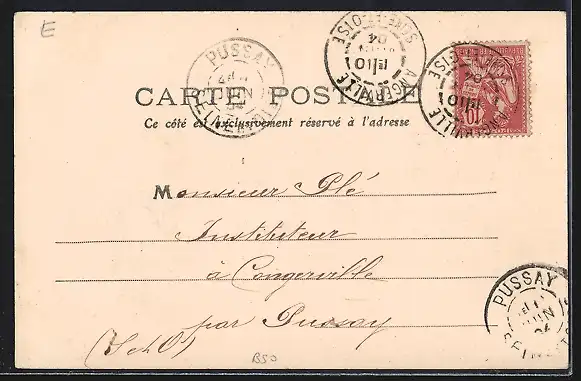 E
PUSSAY
JUIN
04
ANGERVILLE
SEINE-ET-OISE
04
CARTE POSTALE
Ce côté est exclusivement réservé à l'adresse
Monsieur Plé
Instituteur
à Congerville
par Pussay
(S et O)
B50
PUSSAY
JUIN
04